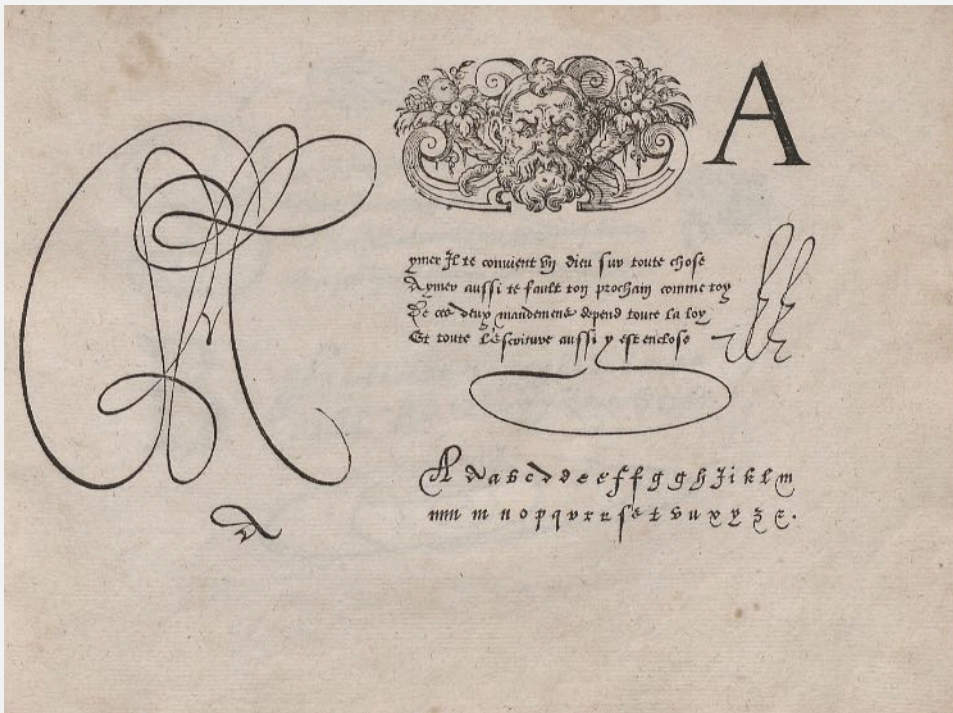 A
A
ymer Il te convient vn Dieu sur toute chose
Aymer aussi te fault ton prochain comme toy
De ces deux mandemens depend toute la loy
Et toute l'Escriture aussi y est enclose
A a a b c d d e e f f g g h J i k l m
m n o p q r r s t v u x y z
a